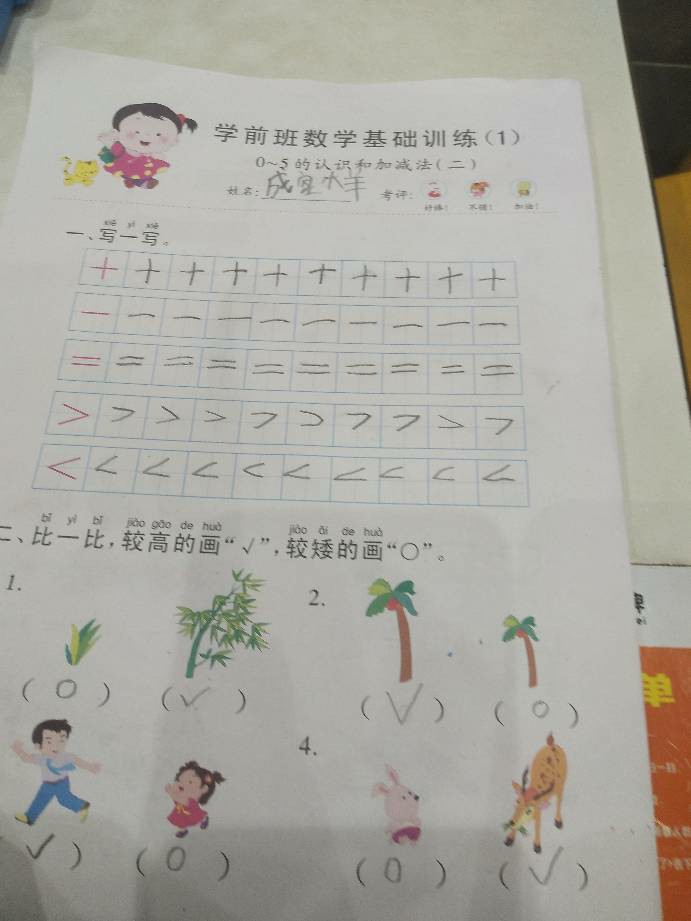 学前班数学基础训练(1)
0~5的认识和加减法(二)
姓名: 成宝大羊 考评: 好棒! 不错! 加油!
xiě yì xiě
一、写一写。
+ + + + + + + + + +
— — — — — — — — — —
= = = = = = = = = =
> > > > > > > > > >
< < < < < < < < < <
bǐ yì bǐ jiào gāo de huà jiào ǎi de huà
二、比一比,较高的画“√”,较矮的画“○”。
1. 2.
( ○ ) ( √ ) ( √ ) ( ○ )
4.
√ ) ( ○ ) ( ○ ) ( √ )
单